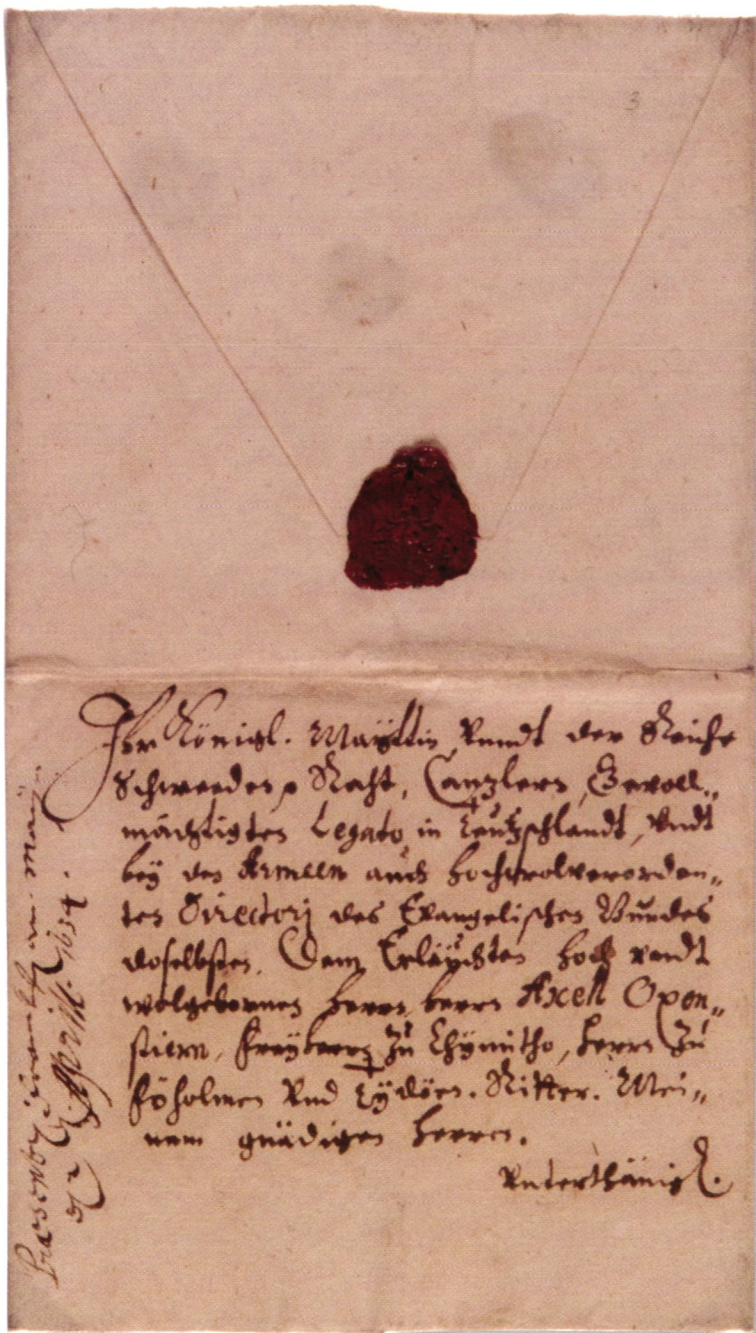 3
Ihr Königl. Mayttis Vundt der Reiche
Schweden p Raht, Canzlern, Gevoll„
mächtigten Legato in Teutschlandt, Vndt
bey den Armeen auch hochwolverorden„
ten Directorj des Evangelischen Bundes
doselbsten. Dem Erläuchten hoch vndt
wolgebornen herrn, herrn Axell Oxen„
stiern, freyherrn zu Chymitho, herrn zu
fÿholmen Vnd Tÿdöen. Ritter. Mei„
nem gnädigen herren.
Vnterthänigl.
Præsent: am Mäyn
d. 2 April. 1634.